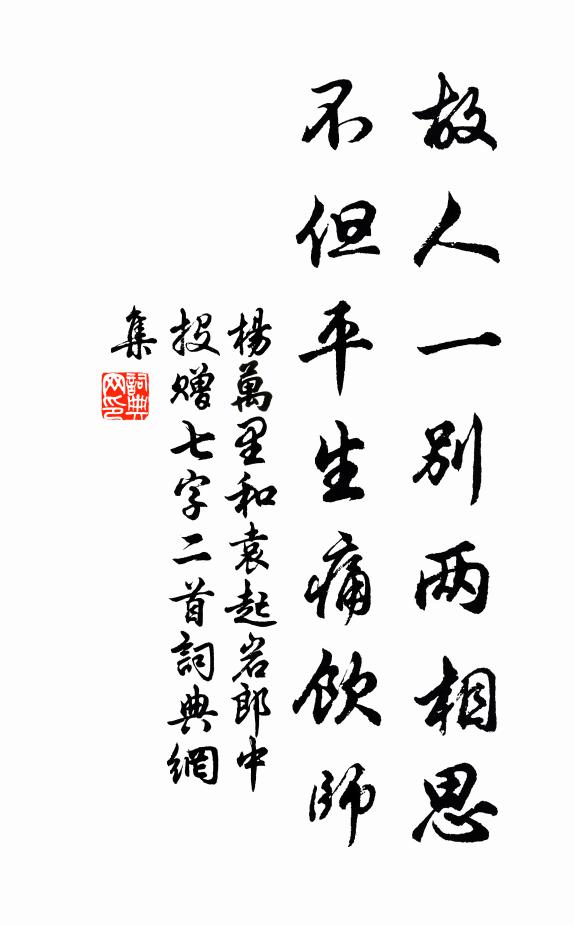 故人一别两相思
不但平生痛饮师
楊萬里和袁起岩郎中
投赠七字二首詞典網
集
詞典
网印